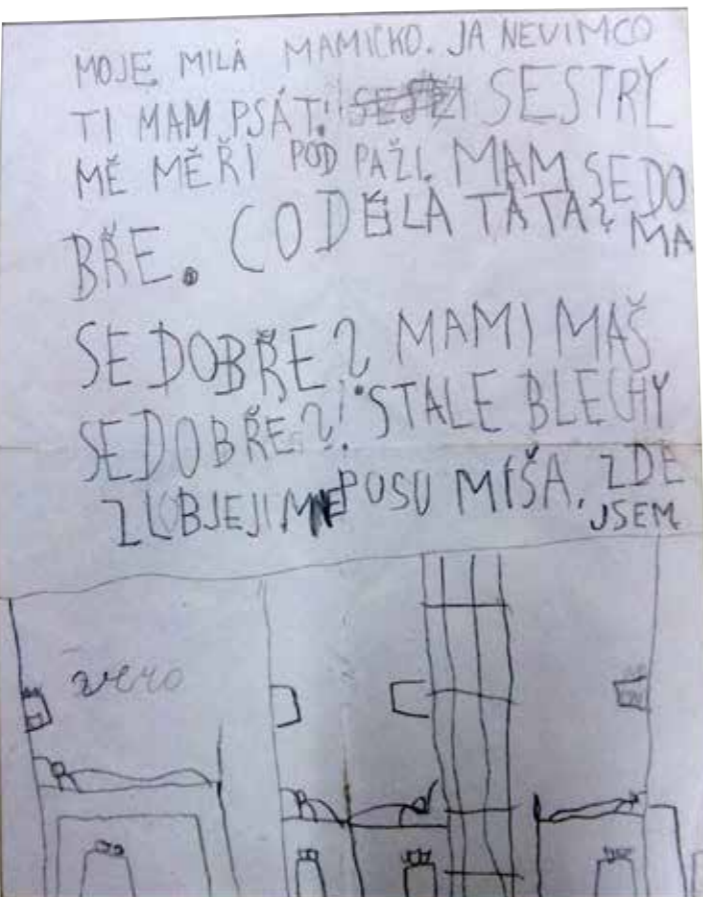 MOJE MILÁ MAMIČKO. JA NEVIMCO
TI MAM PSÁT! SESTRY
MĚ MĚŘI POD PAŽI. MAM SE DO
BŘE. CO DĚLÁ TÁTA? MA
SE DOBŘE? MAMI MAŠ
SE DOBŘE?! STALE BLECHY
ZLOBJEJI MNE POSU MÍŠA. ZDE
JSEM
vero